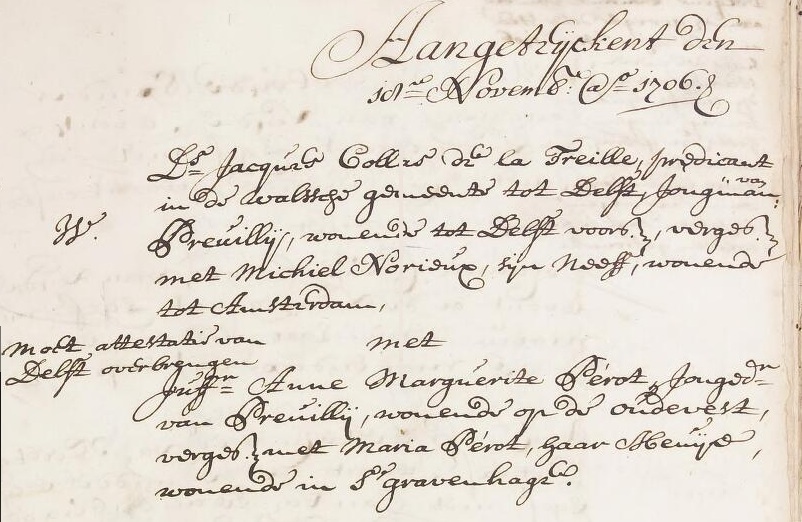 Aangetyckent den
18en Novemb: Ao 1706.
Ds Jacques Collas de la Treille, predicant
in de walssche gemeente tot Delft, Jongman van
We. Preuilly, wonende tot Delft voors., verges.
met Michiel Norieux, sijn Neeff, wonende
tot Amsterdam,
met
Moet attestatie van
Delft overbrengen
Juffr Anne Marguerite Pérot, Jonged.
van Preuilly, wonende op de oudevest,
verges. met Maria Pérot, haar Meuije,
wonende in s'gravenhage.